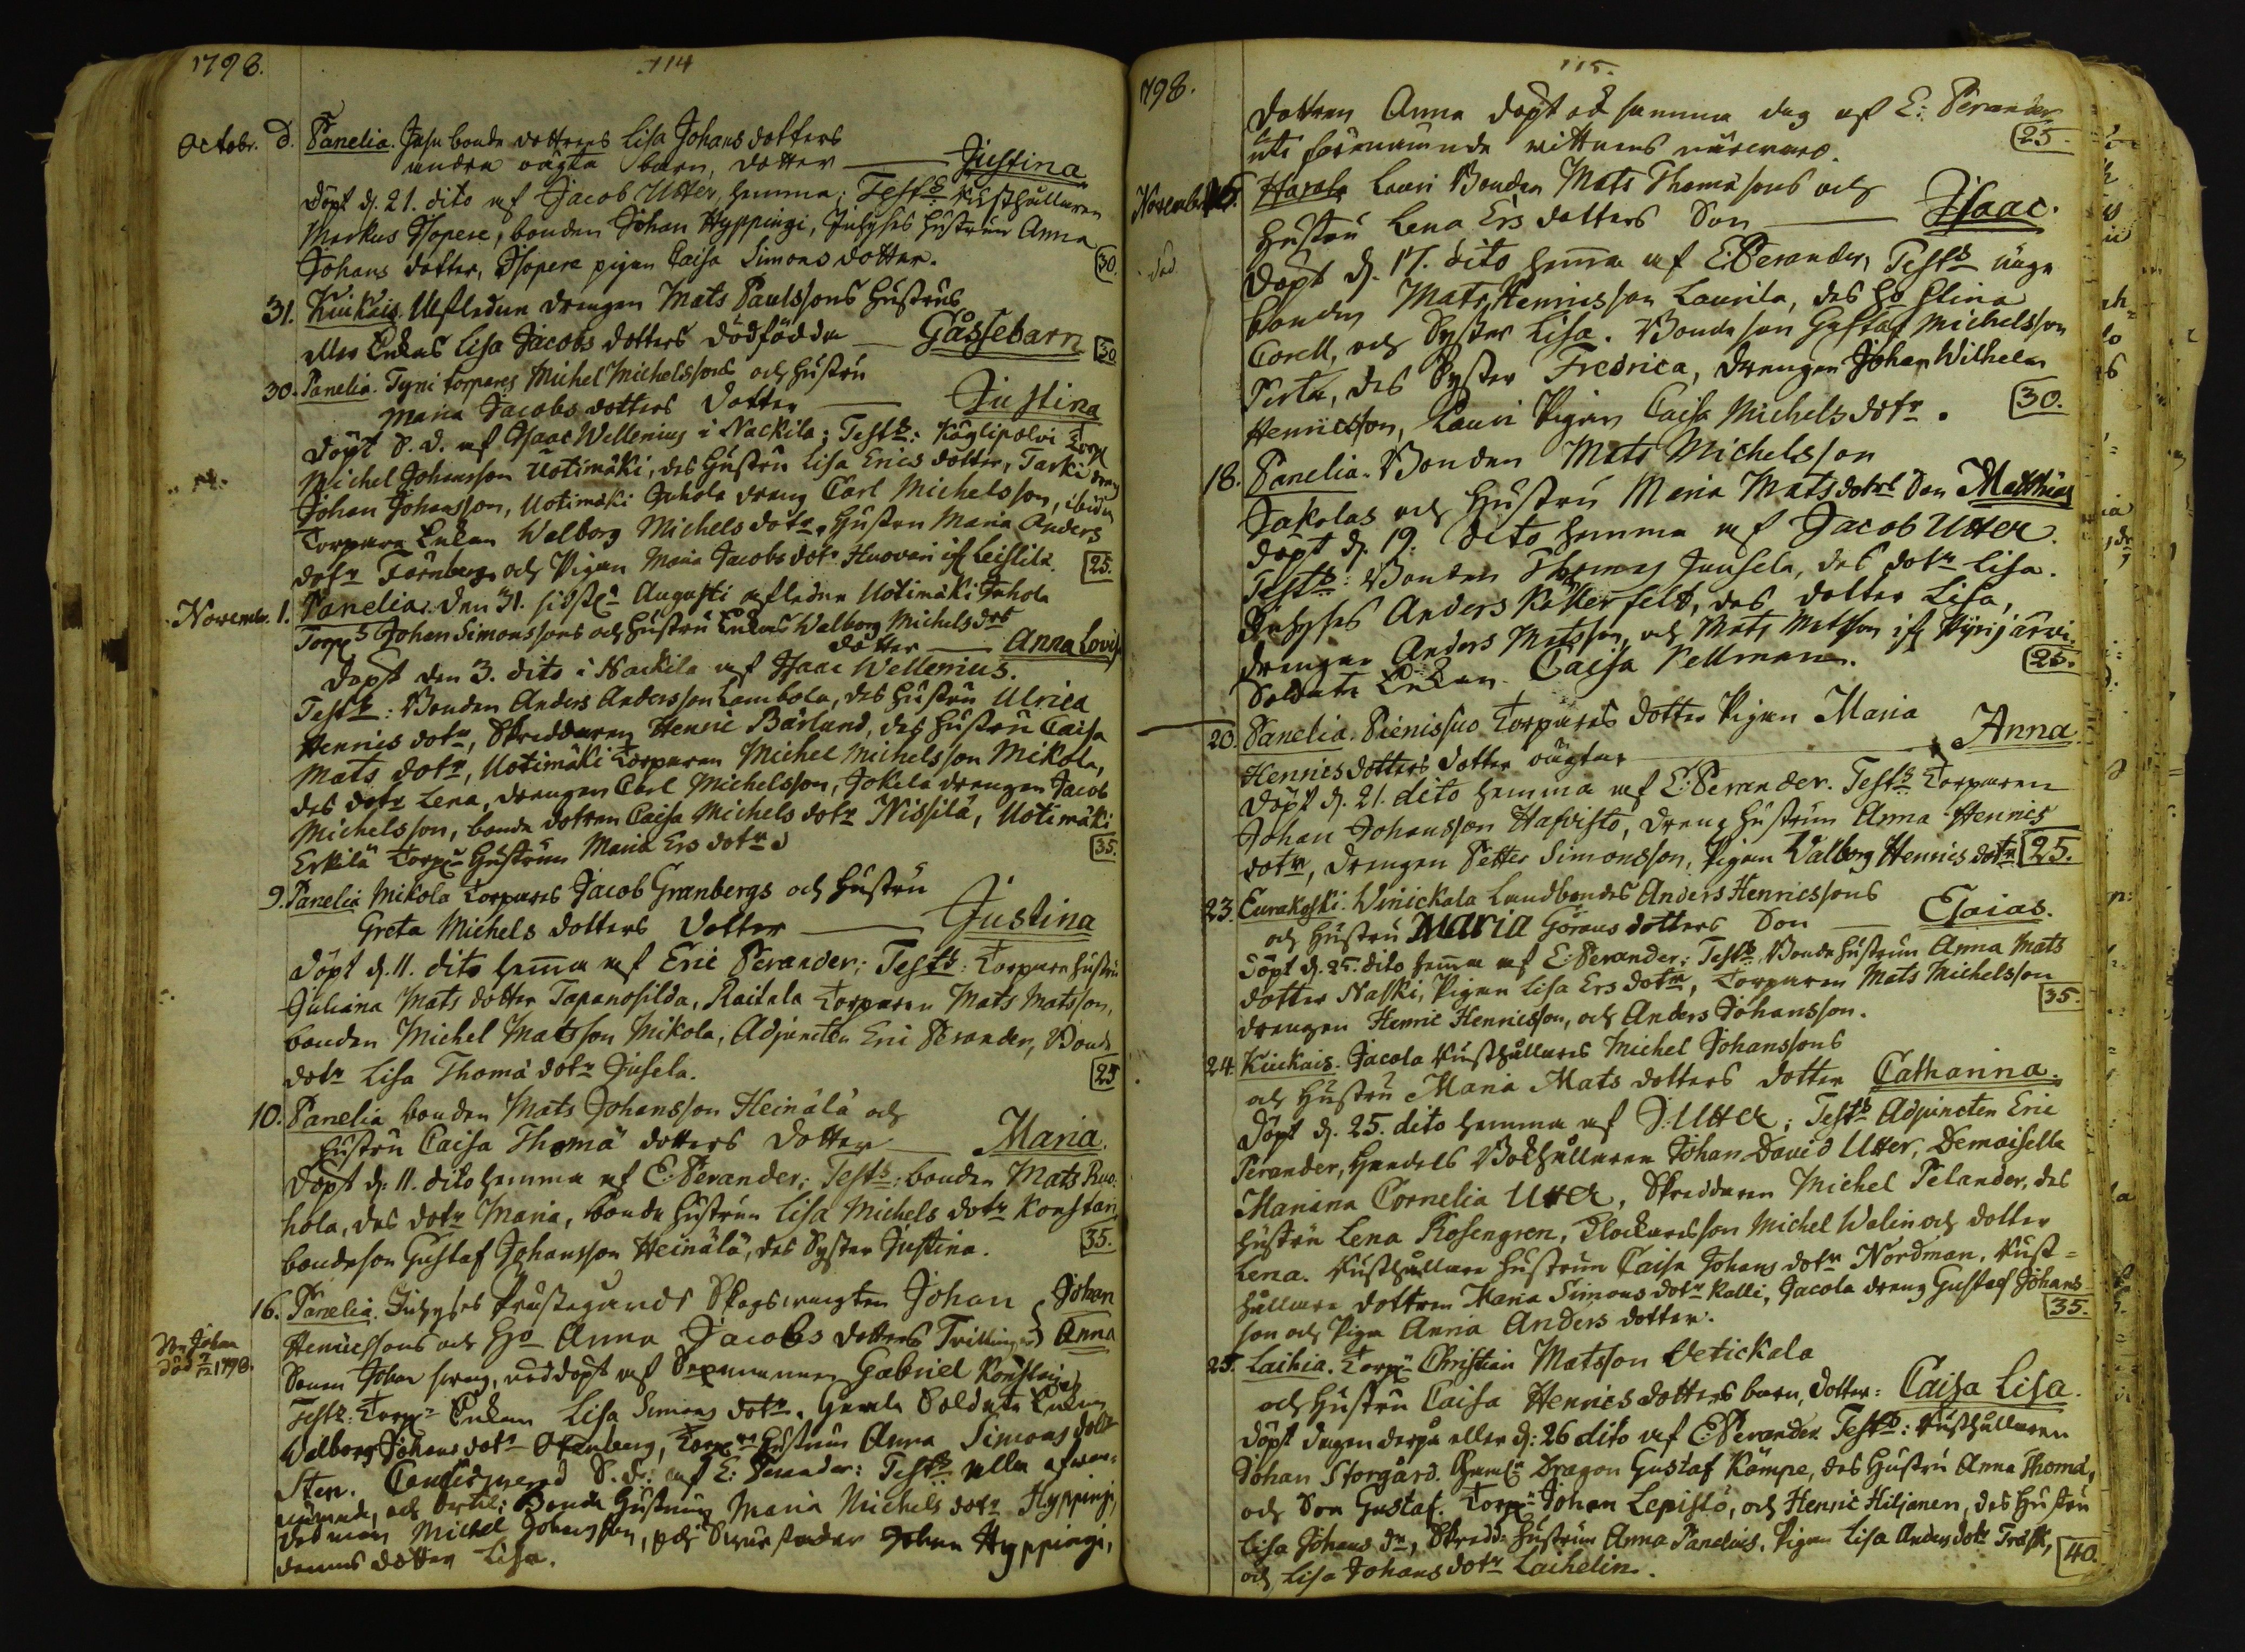 1798.
114
Octobr. d. Panelia. bonde dottrens Lisa Johans dotters
andra oägta barn, dotter — Justina
döpt d. 21. dito af Jacob Utter, hemma; Test: Rusthållaren
Markus Isopere, bonden Johan Hyppingi, hustrun Anna
Johans dotter, Isopere pigan Caisa Simons dotter. 30.
31. Kiukais. Afledne drengen Mats Paulssons Hustrus
eller Enkas Lisa Jacobs dotters dödfödda — Gåssebarn 30
30. Panelia. Tyni torpares Michel Michelssons och hustru
Maria Jacobs dotters dotter — Justina
döpt S. D. af Isaac Wellenius i Nackila; Test: Torp
Michel Johansson Uotimäki, des hustru Lisa Erics dotter,
Johan Johansson, Uotimäki Juhola dreng Carl Michelsson,
Torpare Enkan Walborg Michels dotr, Hustru Maria Anders
dotr Törnberg och Pigan Maria Jacobs dotr Huovari Leistilä. 25.
Novemb. 1. Panelia. Den 31. sidstl. Augusti afledne Uotimäki Juhola
Torp Johan Simonssons och hustru Enkas Walborg Michels dotr
dotter — Anna Lovis
Döpt den 3. dito i Nackila af Isaac Wellenius.
Test: Bonden Anders Andersson Lambola, des hustru Ulrica
Henrics dotr, Skreddaren Henric Bärlund, des hustru Caisa
Mats dotr, Uotimäki Torparen Michel Michelsson Mikola,
des dotr Lena, drengen Carl Michelsson, Jokela drengen Jacob
Michelsson, bonde dotren Caisa Michels dotr Nissilä, Uotimäki
Erkilä Torp Hustrun Maria Ers dotr 35.
9. Panelia Mikola Torpares Jacob Granbergs och hustru
Greta Michels dotters dotter — Justina
döpt d. 11. dito hemma af Eric Perander; Test: Torpare hustru
Juliana Mats dotter Tapanosilda, Raitala Torparen Mats Matsson,
bonden Michel Matsson Mikola, Adjuncten Eric Perander, Bonde
dotr Lisa Thomæ dotr Jusela. 25
10. Panelia bonden Mats Johansson Heinälä och
hustru Caisa Thomæ dotters dotter — Maria.
Döpt d. 11. dito hemma af E. Perander; Test: bonden Mats Ruo-
hola, des dotr Maria, bonde hustrun Lisa Michels dotr Konstari
bondeson Gustaf Johansson Heinälä, des Syster Justina. 35.
16. Panelia. Prästegårds Skogswagten Johan } Johan
Henricssons och Ho Anna Jacobs dotters Tvillingar } Anna
Son Johan död 7/12 1798.
Sonen Johan swag, nöddöpt af Sexmannen Gabriel
Test: Torp Enkan Lisa Simons dotr. Gamla Soldate Enkan
Walborg Johans dotr Stenberg, Torp Hustrun Anna Simons dotr
Sten. S. d. af E: Perander: Test alla
nämnde, och Bonde Hustrun Maria Michels dotr Hyppingi,
Michel Johansson, och Johan Hyppingi,
dennes dotter Lisa.
1798.
115.
dottren Anna döpt ock samma dag af E: Perander
uti förenämnde wittnens närwaro. 25.
November 16. Harola Lauri Bonden Mats Thomæsons och
hustru Lena Ers dotters Son — Isaac.
död
Döpt d. 17. dito hemma af E. Perander, Test äga
bonden Mats Henricsson Laurila, des ho Stina
Corell, och Syster Lisa. Bonde son Gustaf Michelsson
Perta, des Syster Fredrica, drengen Johan Wilhelm
Henricsson, Lauri Pigan Caisa Michels dotr. 30.
18. Panelia. Bonden Mats Michelsson
Jakolas och hustru Maria Mats dotrs Son Matthias
döpt d. 19. dito hemma af Jacob Utter.
Test: Bonden Thomas Juusela, des dotr Lisa.
Anders Kellerfelt, des dotter Lisa,
drengen Anders Matsson, och Mats Matsson Pyrijärvi.
Soldate Enkan Caisa Pellman. 25.
20. Panelia. Pienisuo Torpares dotter Pigan Maria
Henrics dotters dotter oägta — Anna
döpt d. 21. dito hemma af E. Perander. Test Torparen
Johan Johansson Hafvisto, dreng hustrun Anna Henrics
dotr, drengen Petter Simonsson, Pigan Walborg Henrics dotr 25.
23. Eurakoski. Winickala Landbondes Anders Henricssons
och hustru Maria Görans dotters Son — Esaias.
döpt d. 25. dito hemma af E. Perander; Test, Bonde hustrun Anna Mats
dotter Naski, Pigan Lisa Ers dotr, Torparen Mats Michelsson
drengen Henric Henricsson, och Anders Johansson. 35.
24. Kiukais. Jacola Rusthållares Michel Johanssons
och Hustru Maria Mats dotters dotter Catharina.
döpt d. 25. dito hemma af J. Utter; Test Adjuncten Eric
Perander, Handels Bokhållaren Johan David Utter, Demoiselle
Mariana Cornelia Utter, Skreddaren Michel Pelander, des
hustru Lena Rosengren, Klockaresson Michel Walin och dotter
Lena. Rusthållare hustrun Caisa Johans dotr Nordman, Rust=
hållare dottren Maria Simons dotr Kalli, Jacola dreng Gustaf Johans
son och Piga Anna Anders dotter. 35.
25. Laihia. Torp Christian Matsson Vetickala
och hustru Caisa Henrics dotters barn, dotter: Caisa Lisa.
döpt dagen derpå eller d: 26 dito af E. Perander. Test: Rusthållaren
Johan Storgård. Gaml Dragon Gustaf Kämpe, des hustru Anna Thomæ,
och Son Gustaf. Torp Johan Lepistö, och Henric Hiljanen, des hustru
Lisa Johans dr, Skredd hustrun Anna Panelius, Pigan Lisa Anders dotr Träsk,
och Lisa Johans dotr Laihelin. 40.